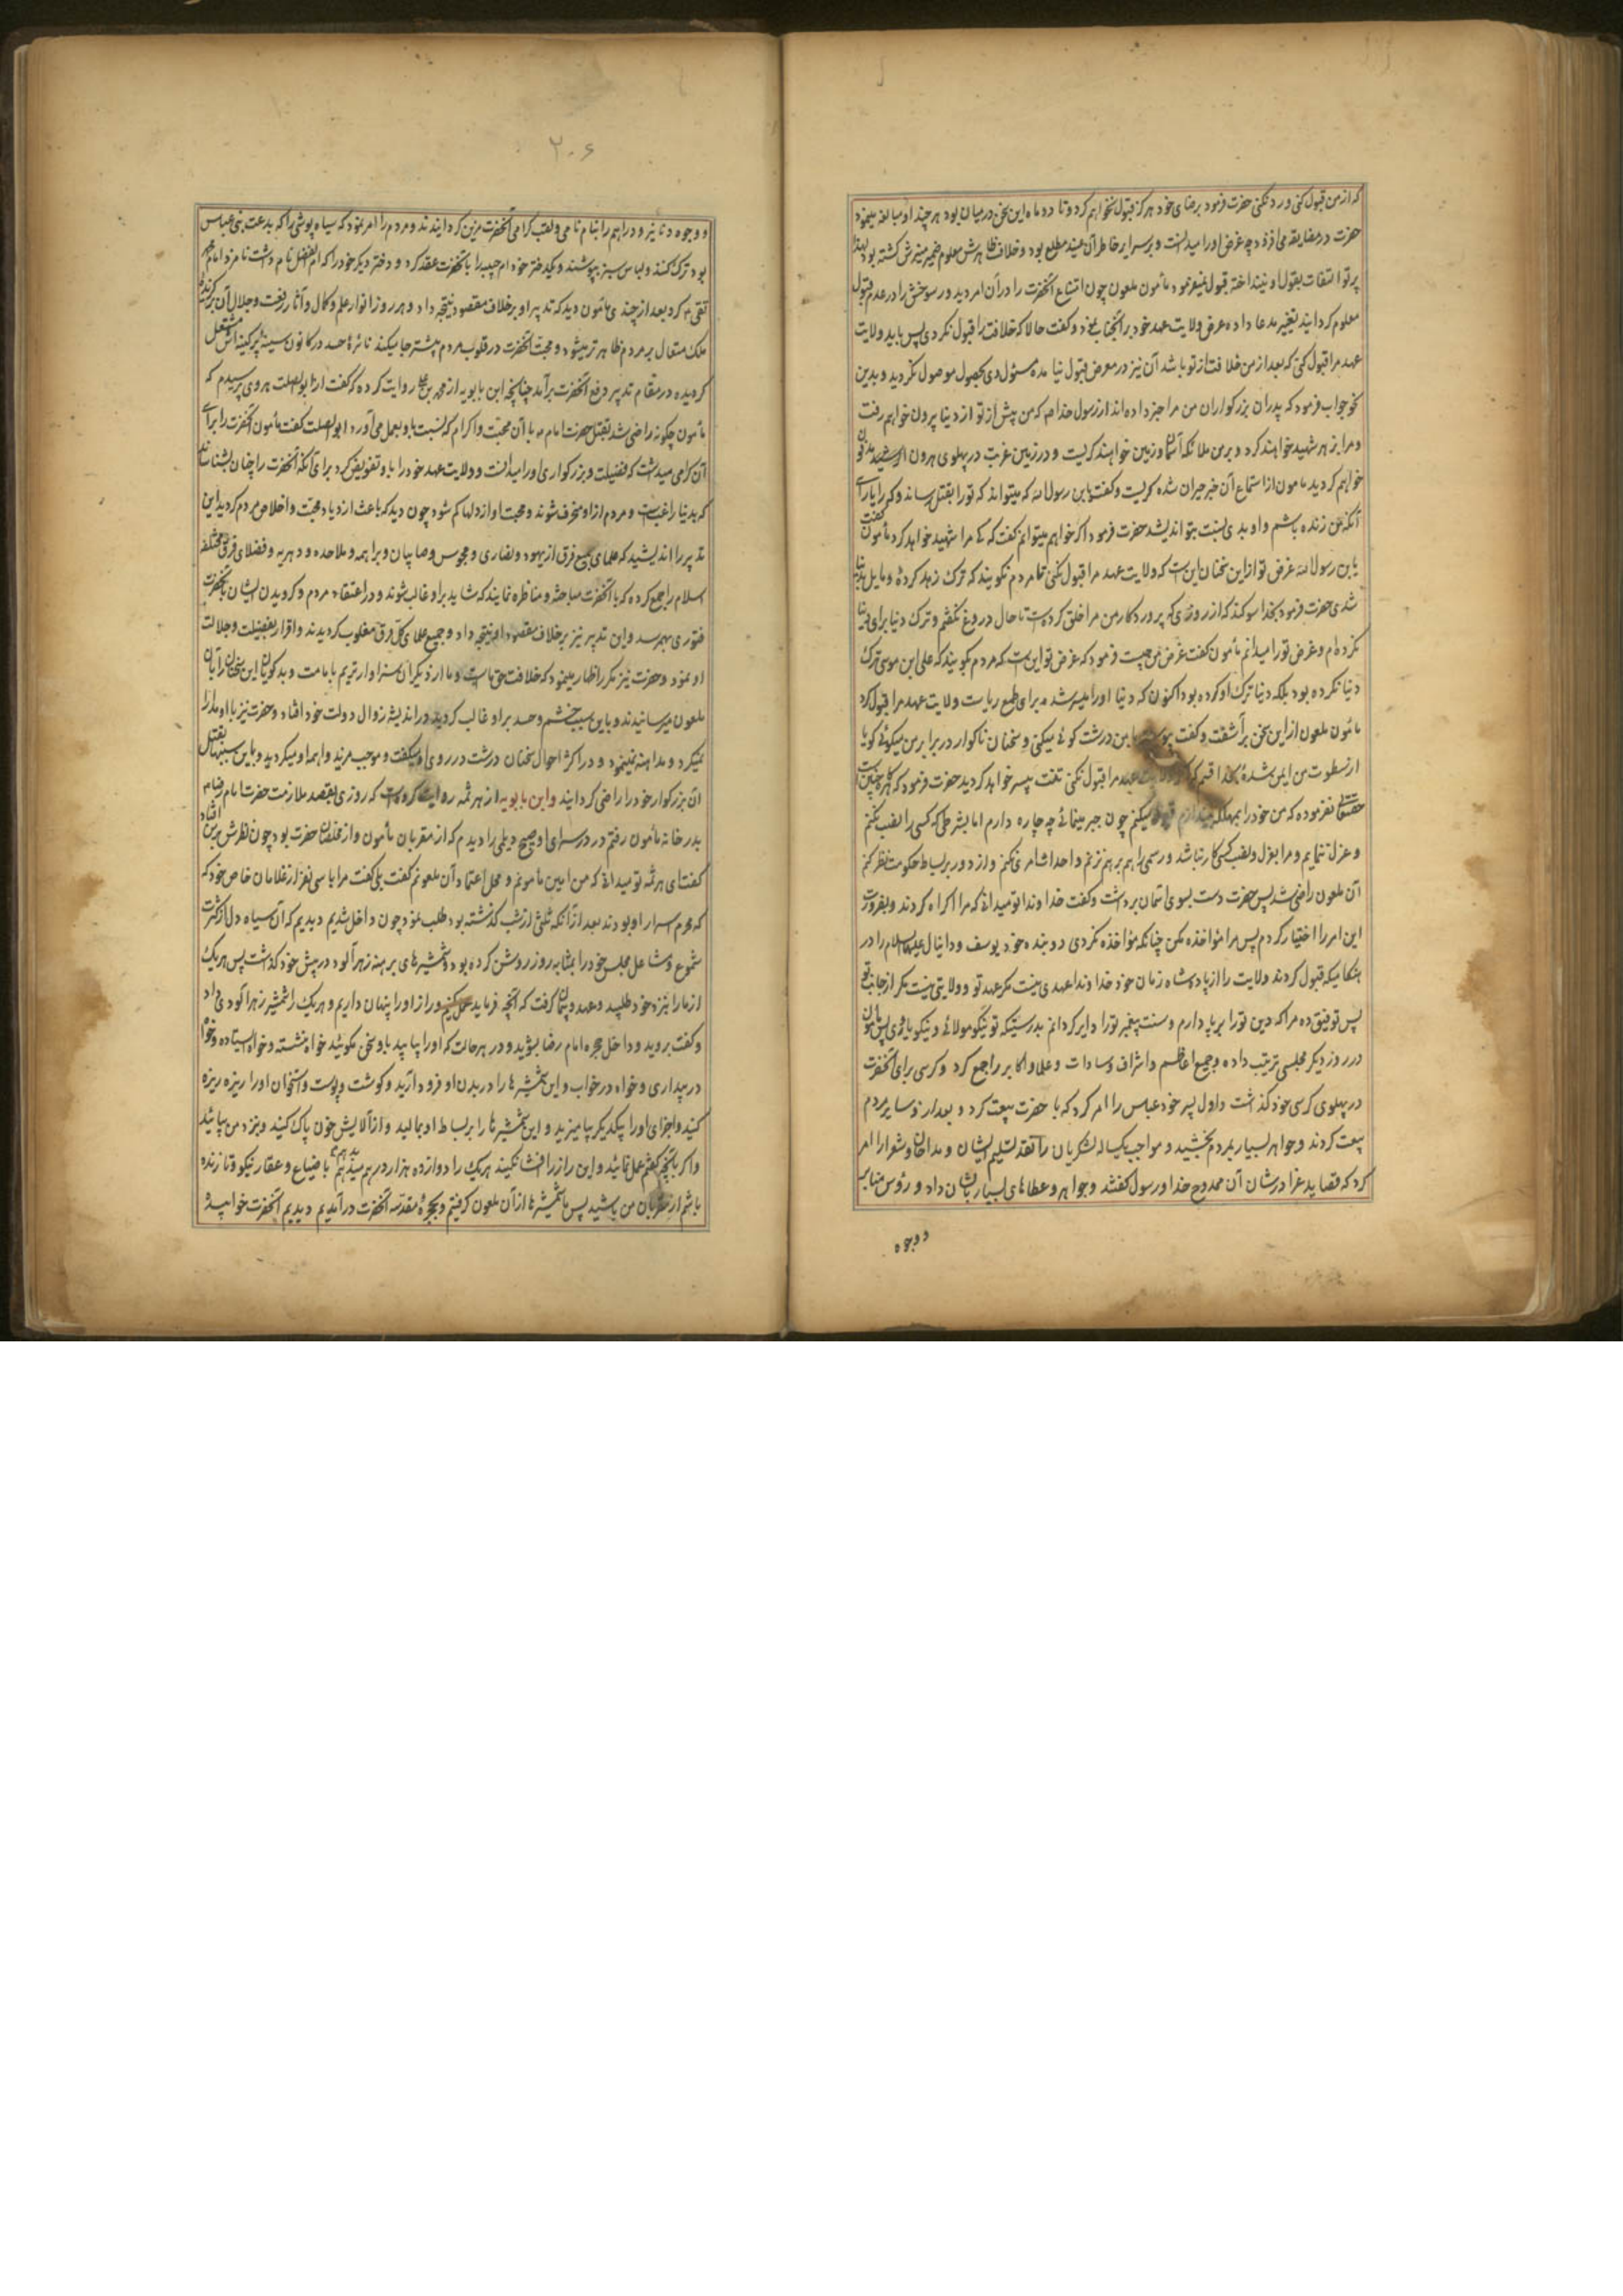 که از من قبول کنی و رد نکنی حضرت فرمود برضای خود هرگز قبول نخواهم کرد و تا دو ماه این سخن در میان بود هر چند او مبالغه مینمود
حضرت در مضایقه می افزود چه غرض او را میدانست و بر سرایر خاطر آن عنید مطلع بود و خلاف ظاهرش معلوم ضمیر منیرش کشته بود لهذا
پرتو التفات بقول او نینداخته قبول نمیفرمود مأمون ملعون چون امتناع آنحضرت را در آن امر دید و رسوخش را در عدم قبول
معلوم کردانید تغییر مدعا داده عرض ولایت عهد خود بر آنجناب نمود و کفت حالا که خلافت را قبول نکردی پس باید ولایت
عهد مرا قبول کنی که بعد از من خلافت از تو باشد آن نیز در معرض قبول نیامده مسئول وی بحصول موصول نکردید و بدین
نحو جواب فرمود که پدران بزرکواران من مرا خبر داده اند از رسول خدا ص که من پیش از تو از دنیا بیرون خواهم رفت
و مرا بزهر شهید خواهند کرد و بر من ملائکه آسمان و زمین خواهند کریست و در زمین غربت در پهلوی هرون الرشید مدفون
خواهم کردید مامون از استماع آن خبر حیران شده کریست و کفت یابن رسول الله که میتواند که تورا بقتل رساند و که را یارای
آنکه من زنده باشم و او بدی نسبت بتو اندیشد حضرت فرمود اکر خواهم میتوانم کفت که که مرا شهید خواهد کرد مأمون کفت
یابن رسول الله غرض تو از این سخنان این است که ولایت عهد مرا قبول نکنی تا مردم نکویند که ترک زهد کردهٔ و مایل بدنیا
شدی حضرت فرمود بخدا سوکند که از روزی که پروردکار من مرا خلق کرده است تا حال دروغ نکفتم و ترک دنیا برای دنیا
نکرده ام و غرض تو را میدانم مأمون کفت غرض من چیست فرمود که غرض تو این است که مردم بکویند که علی ابن موسی ترک
دنیا نکرده بود بلکه دنیا ترک او کرده بود اکنون که دنیا او را میسر شد برای طمع ریاست ولایت عهد مرا قبول کرد
مأمون ملعون از این سخن برآشفت و کفت با من درشت کوئی میکنی و سخنان ناکوار در برابر من میکوئی کویا
از سطوت من ایمن شدهٔ بخدا قسم که اکر ولایت عهد مرا قبول نکنی تنت بیسر خواهد کردید حضرت فرمود که اکر چنین است
حقتعالی نفرموده که من خود را بمهلکه بیندازم قبول میکنم چون جبر مینمائی چه چاره دارم اما بشرطی که کسی را نصب نکنم
و عزل ننمایم و مرا بعزل و نصب کسی کار نباشد و رسمی را هم بر هم نزنم و احداث امر نکنم و از دور بر بساط حکومت نظر کنم
آن ملعون راضی شد پس حضرت دست بسوی آسمان برداشت و کفت خداوندا تو میدانی که مرا اکراه کردند و بضرورت
این امر را اختیار کردم پس مرا مؤاخذه مکن چنانکه مؤاخذه نکردی دو بنده خود یوسف و دانیال علیهما السلام را در
هنکامیکه قبول کردند ولایت را از پادشاه زمان خود خداوندا عهدی نیست مکر عهد تو و ولایتی نیست مکر از جانب تو
پس توفیق ده مرا که دین تو را برپا دارم و سنت پیغمبر تو را دایر کردانم بدرستیکه تو نیکو مولائی و نیکو یاوری پس مامون
در روز دیکر مجلسی ترتیب داده و جمیع اعاظم و اشراف و سادات و علما و اکابر را جمع کرد و کرسی برای آنحضرت
در پهلوی کرسی خود کذاشت و اول پسر خود عباس را امر کرد که با حضرت بیعت کرد و بعد از او سایر مردم
بیعت کردند و جواهر بسیار بمردم بخشید و مواجب یکساله لشکریان را نقد تسلیم ایشان و مداحان و شعرا را امر
کرد که قصاید غرا در شان آن ممدوح خدا و رسول کفتند و جواهر و عطاهای بسیار بایشان داد و رؤس منابر
و وجوه
۲۰۶
و وجوه دنانیر و دراهم را بنام نامی و لقب کرامی آنحضرت مزین کردانیدند و مردم را امر نمود که سیاه پوشی را که بدعت بنی عباس
بود ترک کنند و لباس سبز بپوشند و یکدختر خود ام حبیبه را بآنحضرت عقد کرد و دختر دیکر خود را که ام الفضل نام داشت نامزد امام محمد
تقی ع کرد بعد از چندی مأمون دید که تدبیر او بر خلاف مقصود نتیجه داد و هر روز انوار علم و کمال و آثار رفعت و جلال آن برکزیدهٔ
ملک متعال بر مردم ظاهرتر میشود و محبت آنحضرت در قلوب مردم بیشتر جا میکند نائرهٔ حسد در کانون سینهٔ پر کینه اش مشتعل
کردیده در مقام تدبیر دفع آنحضرت برآمد چنانچه ابن بابویه از محمد بن علی روایت کرده که کفت از ابوالصلت هروی پرسیدم که
مأمون چکونه راضی شد بقتل حضرت امام با آن محبت و اکرام که نسبت باو بعمل می آورد ابوالصلت کفت مأمون آنحضرت را برای
آن کرامی میداشت که فضیلت و بزرکواری او را میدانست و ولایت عهد خود را باو تفویض کرد برای آنکه آنحضرت را چنان بشناسند
که بدنیا راغب است و مردم از او منحرف شوند و محبت او از دلها کم شود چون دید که باعث ازدیاد محبت و اخلاص مردم کردید این
تدبیر را اندیشید که علمای جمیع فرق از یهود و نصاری و مجوس و صابیان و براهمه و ملاحده و دهریه و فضلای فرق مختلفه
اسلام را جمع کرده که با آنحضرت مباحثه و مناظره نمایند که شاید بر او غالب شوند و در اعتقاد مردم و کرویدن ایشان بآنحضرت
فتوری بهمرسد و این تدبیر نیز بر خلاف مقصود او نتیجه داد و جمیع علمای کل فرق مغلوب کردیدند و اقرار بفضیلت و جلالت
او نمود و حضرت نیز مکرر اظهار مینمود که خلافت حق ماست و ما از دیکران سزاوارتریم بامامت و بدکویان این سخنان را بآن
ملعون میرسانیدند و باین سبب خشم و حسد بر او غالب کردید و در اندیشهٔ زوال دولت خود افتاد و حضرت نیز با او مدارا
نمیکرد و مداهنه نمینمود و در اکثر احوال سخنان درشت در روی او میکفت و موجب مزید واهمه او میکردید و باین سببها بقتل
آن بزرکوار خود را راضی کردانید و ابن بابویه از هرثمه روایت کرده است که روزی بقصد ملازمت حضرت امام رضا بم
بدر خانه مأمون رفتم در در سرای او صبیح دیلمی را دیدم که از مقربان مأمون و از مخلصان حضرت بود چون نظرش بر من افتاد
کفت ای هرثمه تو میدانی که من امین مامونم و محل اعتماد آن ملعونم کفت بلی کفت مرا با سی نفر از غلامان خاص خود که
که محرم اسرار او بودند بعد از آنکه ثلثی از شب کذشته بود طلب نمود چون داخل شدیم دیدیم که آن سیاه دل از کثرت
شموع و مشاعل مجلس خود را بمثابه روز روشن کرده بود و شمشیرهای برهنه زهر آلود در پیش خود کذاشت پس هر یک
از ما را بنزد خود طلبید و عهد و پیمان کرفت که آنچه فرماید عمل کنیم و راز او را پنهان داریم و هر یک را شمشیر زهر آلودی داد
و کفت بروید و داخل حجره امام رضا بشوید و در هر حالت که او را بیابید باو سخن مکوئید خواه نشسته و خواه ایستاده و خواه
در بیداری و خواه در خواب و این شمشیرها را در بدن او فرود آرید و کوشت و پوست و استخوان او را ریزه ریزه
کنید و اجزای او را بیکدیکر بیامیزید و این شمشیرها را بر بساط او بمالید و از آلایش خون پاک کنید و بنزد من بیائید
و اکر بآنچه کفتم عمل نمائید و این راز را افشا نکنید هر یک را دوازده هزار درهم بدهم با ضیاع و عقار نیکو و تا زنده
باشم از مقربان من باشید پس ما شمشیرها از آن ملعون کرفتیم و بحجرهٔ مقدسه آنحضرت درآمدیم دیدیم آنحضرت خوابیده